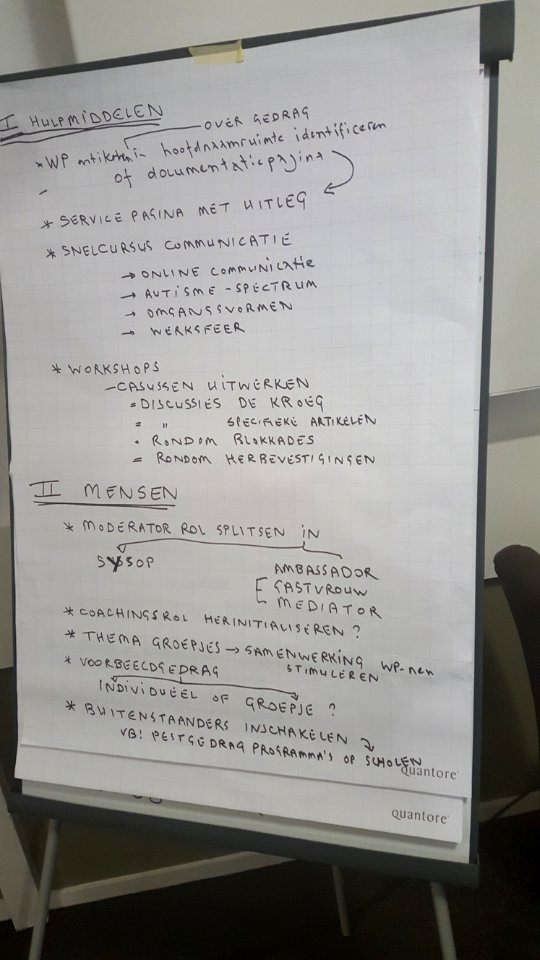 I HULPMIDDELEN
OVER GEDRAG
* WP artikel in hoofdnaamruimte identificeren
of documentatiepagina
* SERVICE PAGINA MET UITLEG
* SNELCURSUS COMMUNICATIE
→ ONLINE COMMUNICATIE
→ AUTISME - SPECTRUM
→ OMGANGSVORMEN
→ WERKSFEER
* WORKSHOPS
- CASUSSEN UITWERKEN
= DISCUSSIES DE KROEG
= " SPECIFIEKE ARTIKELEN
= RONDOM BLOKKADES
= RONDOM HERBEVESTIGINGEN
II MENSEN
* MODERATOR ROL SPLITSEN IN
SYSOP
AMBASSADOR
GASTVROUW
MEDIATOR
* COACHINGSROL HERINITIALISEREN ?
* THEMA GROEPJES → SAMENWERKING WP-nen
STIMULEREN
* VOORBEELDGEDRAG
INDIVIDUEEL OF GROEPJE ?
* BUITENSTAANDERS INSCHAKELEN
VB! PESTGEDRAG PROGRAMMA'S OP SCHOLEN
Quantore
Quantore